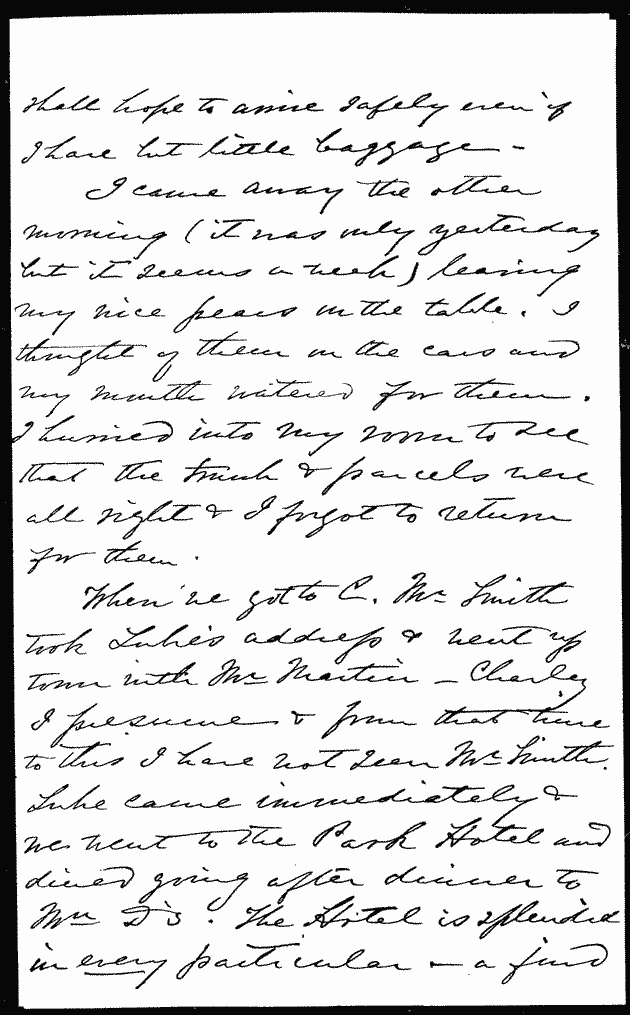 shall hope to arrive safely even if
I have but little baggage –
I came away the other
morning (it was only yesterday
but it seems a week) leaving
my nice pears on the table. I
thought of them on the cars and
my mouth watered for them.
I hurried into my room to see
that the trunk & parcels were
all right & I forgot to return
for them.
When we got to C. Mr Smith
took Luke's address & went up
town with Mr Martin – Charley
I presume & from that time
to this I have not seen Mr Smith.
Luke came immediately &
we went to the Park Hotel and
dined going after dinner to
Mrs D's. The Hotel is splendid
in every particular – a find